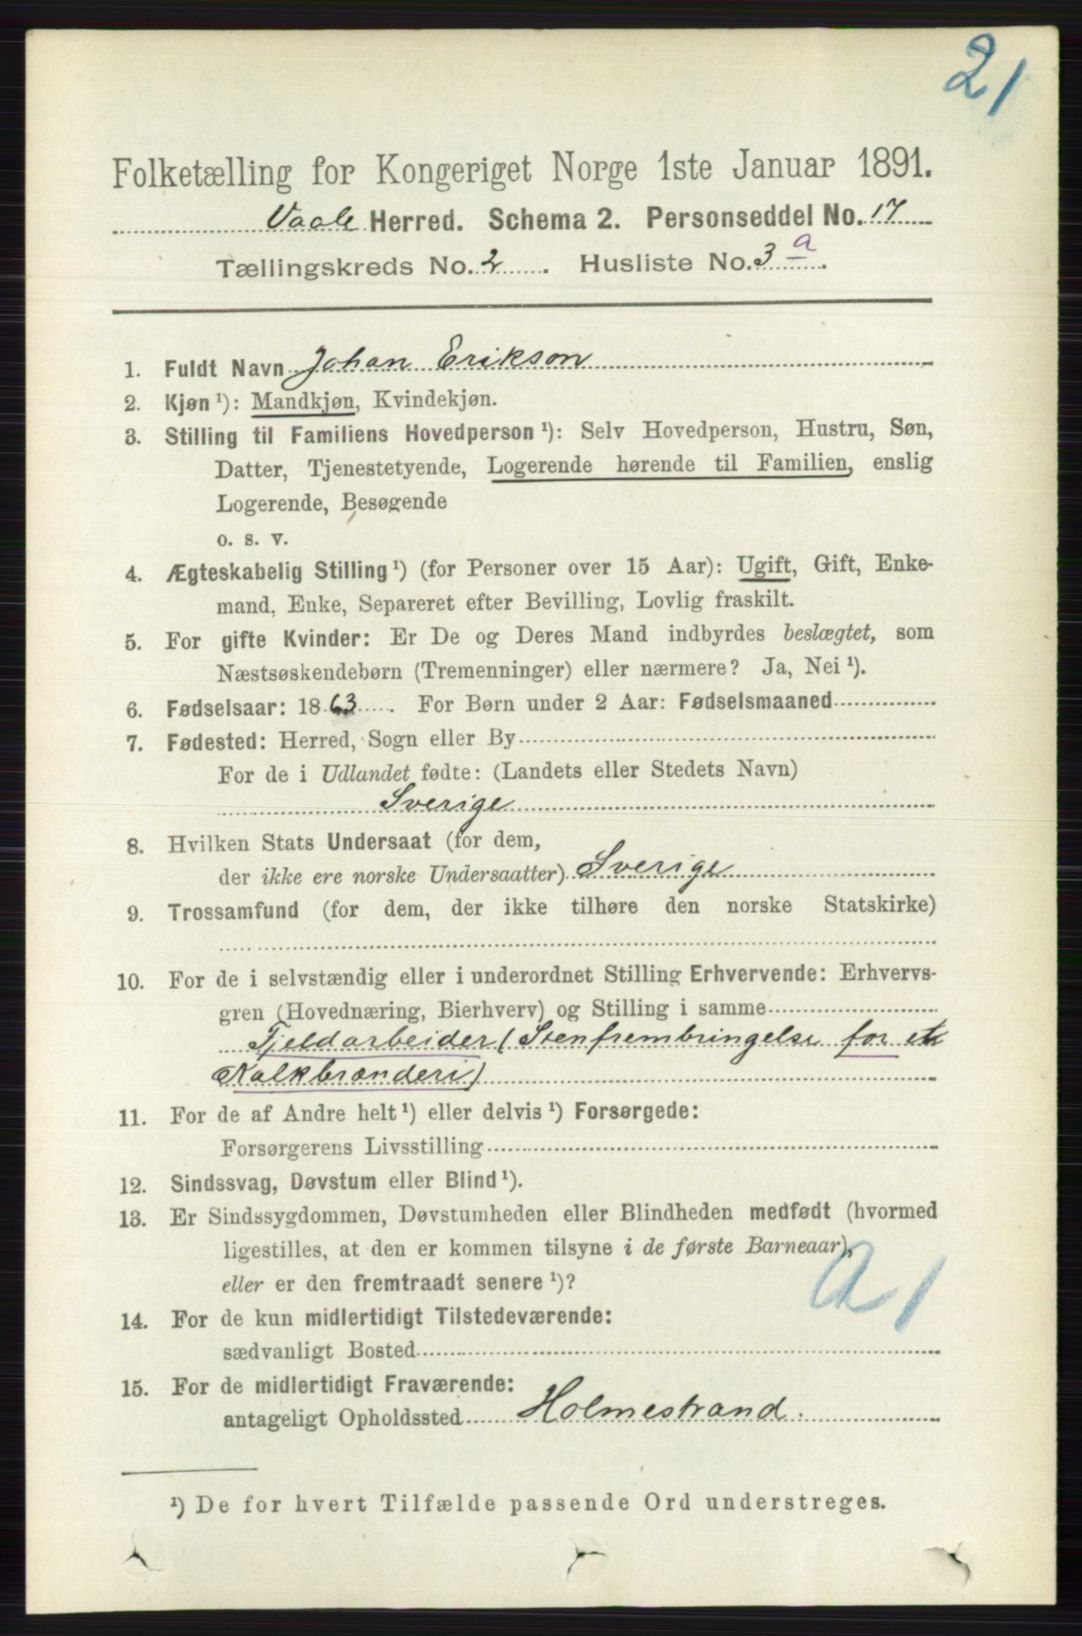 21
Folketælling for Kongeriget Norge 1ste Januar 1891.
Vaale Herred. Schema 2. Personseddel No. 17
Tællingskreds No. 2. Husliste No. 3 a.
1. Fuldt Navn Johan Erikson
2. Kjøn ¹): Mandkjøn, Kvindekjøn.
3. Stilling til Familiens Hovedperson ¹): Selv Hovedperson, Hustru, Søn,
Datter, Tjenestetyende, Logerende hørende til Familien, enslig
Logerende, Besøgende
o. s. v.
4. Ægteskabelig Stilling ¹) (for Personer over 15 Aar): Ugift, Gift, Enke-
mand, Enke, Separeret efter Bevilling, Lovlig fraskilt.
5. For gifte Kvinder: Er De og Deres Mand indbyrdes beslægtet, som
Næstsøskendebørn (Tremenninger) eller nærmere? Ja, Nei ¹).
6. Fødselsaar: 1863. For Børn under 2 Aar: Fødselsmaaned
7. Fødested: Herred, Sogn eller By
For de i Udlandet fødte: (Landets eller Stedets Navn)
Sverige
8. Hvilken Stats Undersaat (for dem,
der ikke ere norske Undersaatter) Sverige
9. Trossamfund (for dem, der ikke tilhøre den norske Statskirke)
10. For de i selvstændig eller i underordnet Stilling Erhvervende: Erhvervs-
gren (Hovednæring, Bierhverv) og Stilling i samme
Fjeldarbeider (Stenfrembringelse for et
Kalkbrænderi)
11. For de af Andre helt ¹) eller delvis ¹) Forsørgede:
Forsørgerens Livsstilling
12. Sindssvag, Døvstum eller Blind ¹).
13. Er Sindssygdommen, Døvstumheden eller Blindheden medfødt (hvormed
ligestilles, at den er kommen tilsyne i de første Barneaar),
eller er den fremtraadt senere ¹)?
14. For de kun midlertidigt Tilstedeværende:
sædvanligt Bosted
15. For de midlertidigt Fraværende:
antageligt Opholdssted Holmestrand.
¹) De for hvert Tilfælde passende Ord understreges.